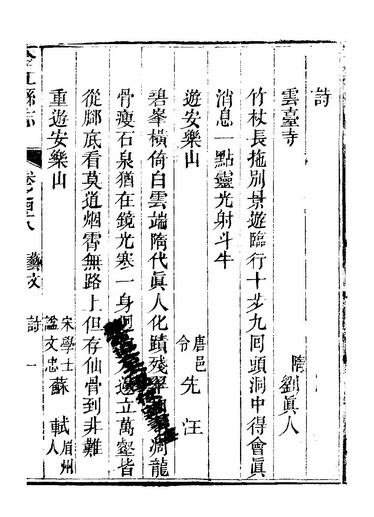 詩
雲臺寺 隋劉眞人
竹杖長拖別景遊臨行十步九囘頭洞中得會眞
消息一點靈光射斗牛
遊安樂山 唐邑令先汪
碧峯橫倚白雲端隋代眞人化蹟殘翠凋龍
骨瘦石泉猶在鏡光寒一身立萬壑皆
從腳底看莫道烟霄無路上但存仙骨到非難
重遊安樂山 宋學士謚文忠蘇軾眉州人
江縣志 藝文 詩 一